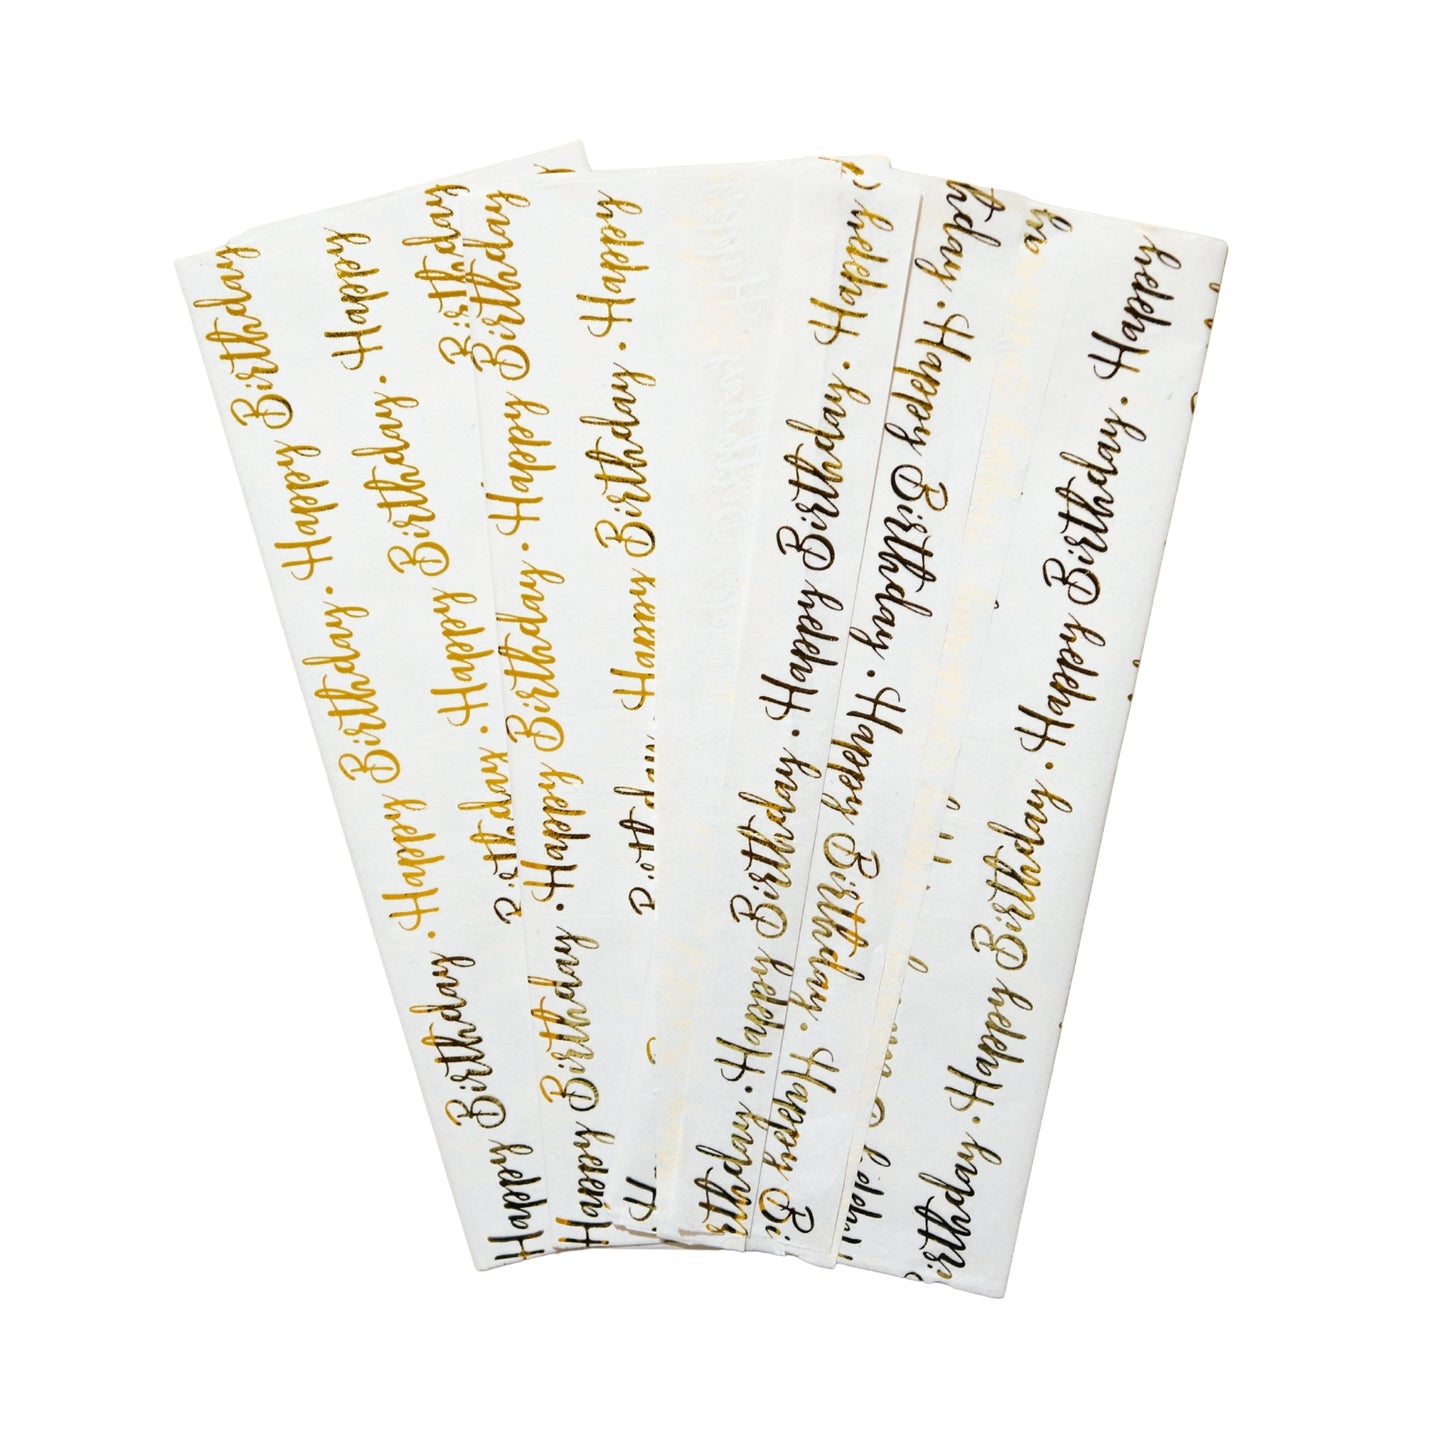 Birthday
Happy Birthday • Happy Birthday • Happy Birthday
Happy Birthday • Happy
Birthday
Happy Birthday • Happy Birthday • Happy Birthday
Happy Birthday • Happy
Happy Birthday • Happy Birthday • Happy
Birthday • Happy Birthday • Happy Birthday • Happy
Birthday • Happy Birthday • Happy Birthday • Happy